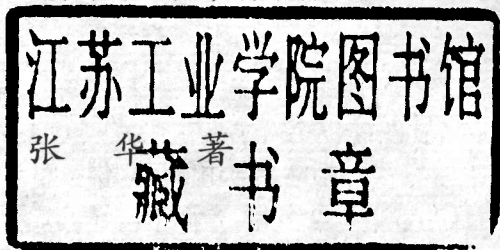 江苏工业学院图书馆
张 华 著
藏书章